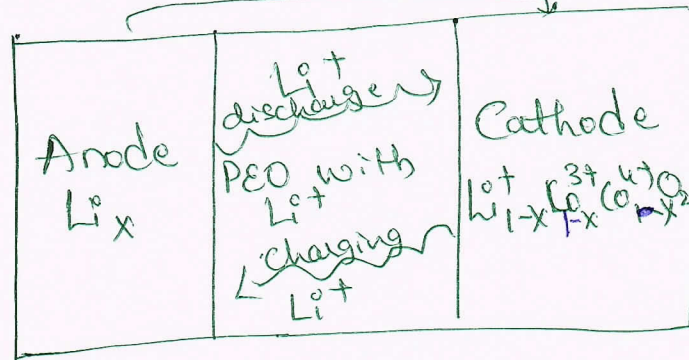 Anode
Li x
Li +
discharge
PEO with
Li +
Charging
Li +
Cathode
Li + 1-x Co 3+ 1-x Co 4+ O2